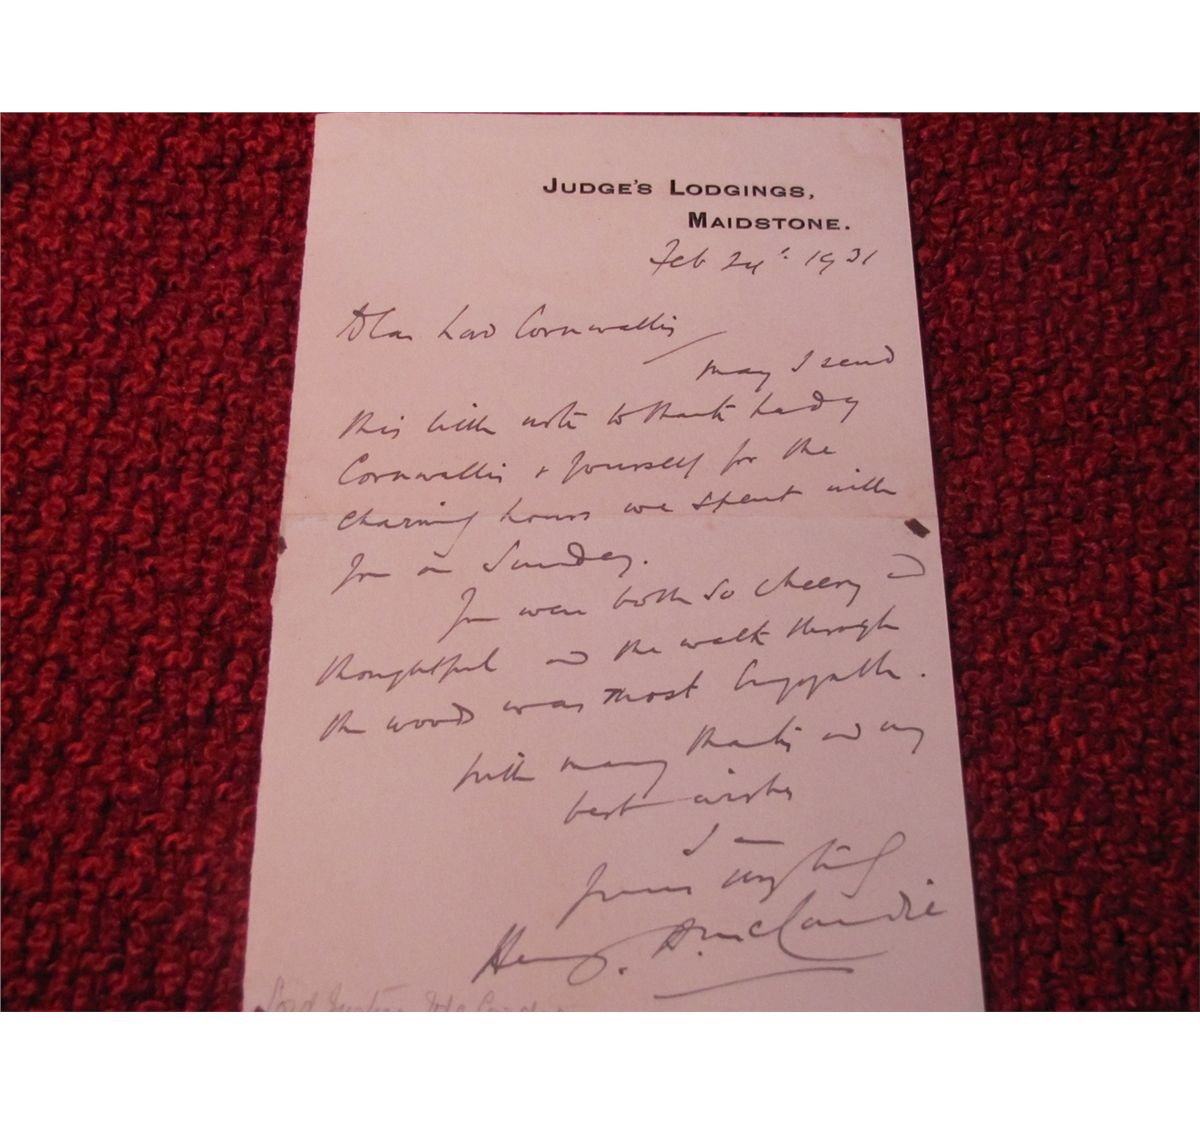 JUDGE'S LODGINGS,
MAIDSTONE.
Feb 24th 1931
Dear Lord Cornwallis
may I send
this little note to thank Lady
Cornwallis & yourself for the
charming hours we spent with
you on Sunday.
You were both so cheery and
thoughtful and the walk through
the wood was most enjoyable.
With many thanks and my
best wishes
I am
yours very truly
Henry A. McCardie
Lord Justice McCardie